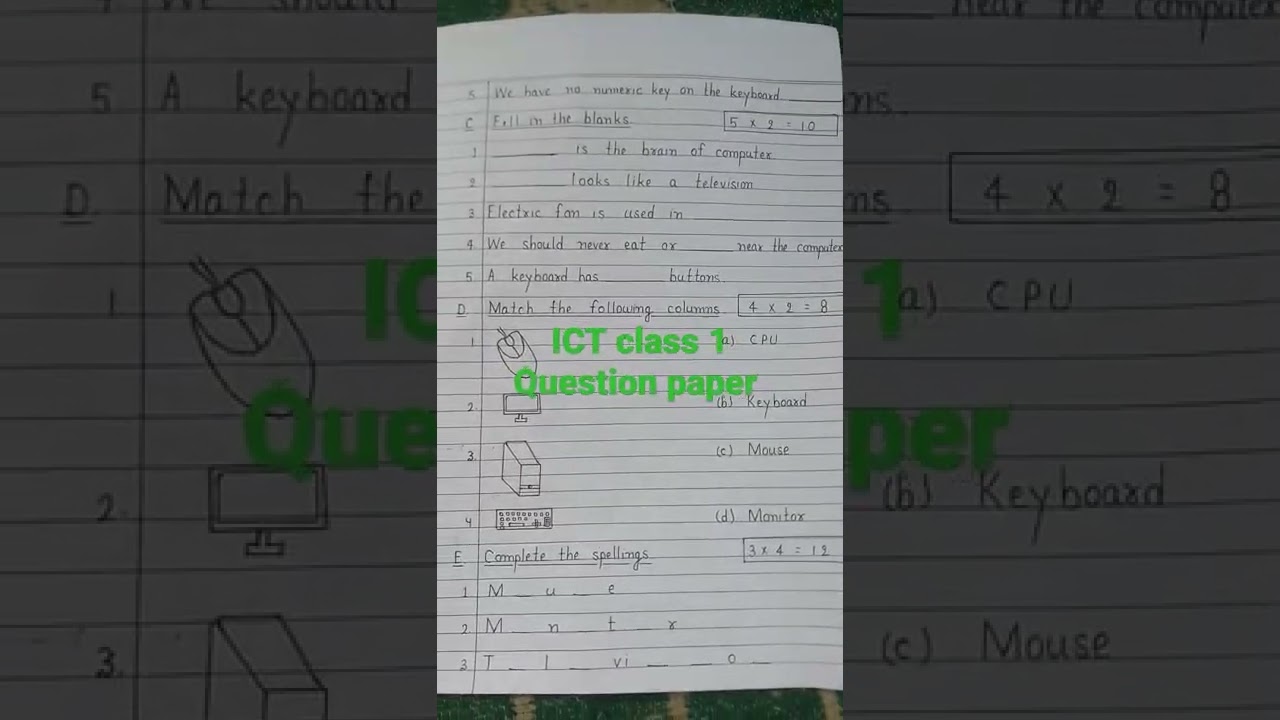 5 We have no numeric key on the keyboard. ______
C Fill in the blanks. 5 x 2 = 10
1 ______ is the brain of computer.
2 ______ looks like a television
3 Electric fan is used in ______
4. We should never eat or ____ near the computer
5 A keyboard has ____ buttons.
D. Match the following columns. 4 x 2 = 8
1 a) CPU
ICT class 1
Question paper
2. (b) Keyboard
3. (c) Mouse
4 (d) Monitor
E Complete the spellings 3 x 4 = 12
1 M _ u _ e
2 M _ n _ t _ r
3 T _ l _ vi _ _ o _